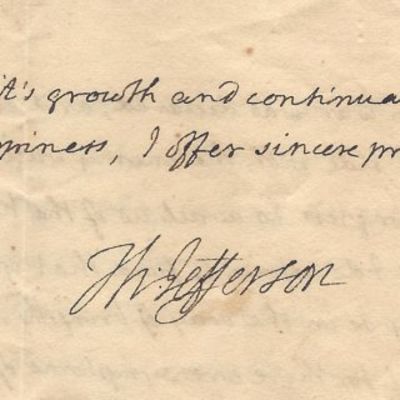 it's growth and continua
ppiness, I offer sincere pr
Th: Jefferson